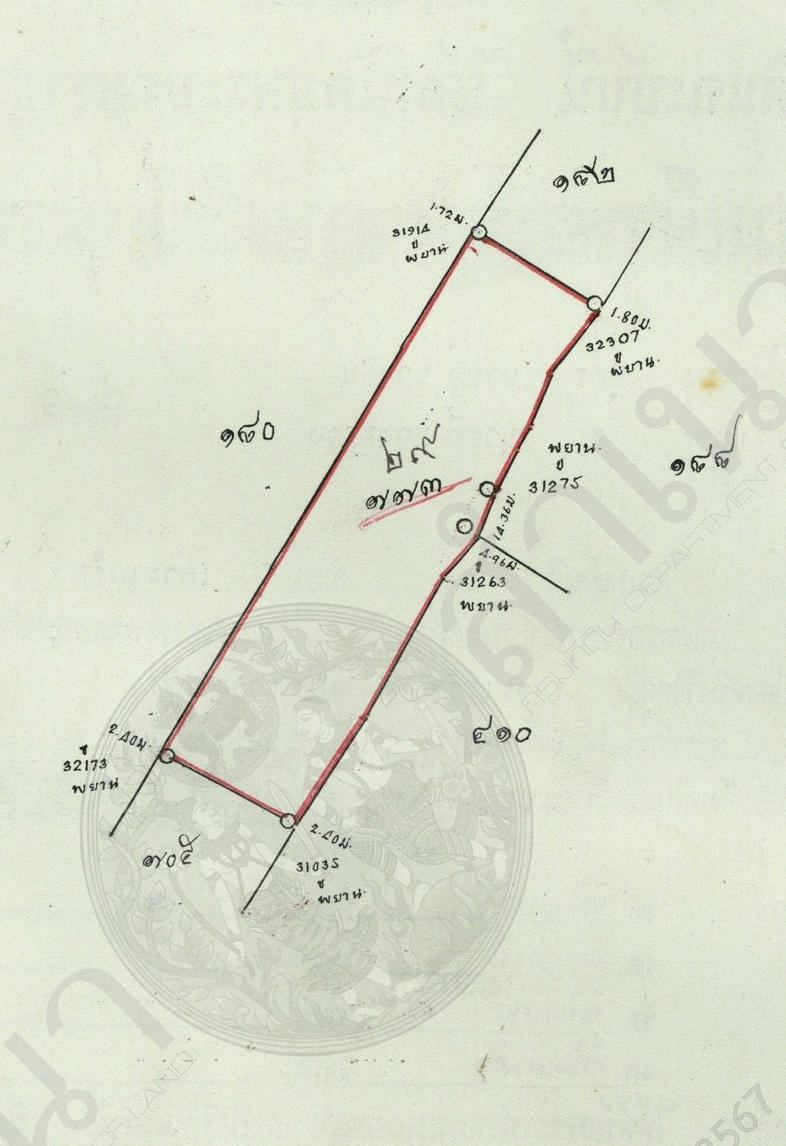 ๑๘๒
1.72ม.
31914
ขู
พยาน
1.80ม.
32307
ขู
พยาน
๑๘๐
๗๗๓
พยาน
ขู
31275
๑๘๘
14.36ม.
4.96ม.
31263
พยาน
๔๑๐
2.40ม.
32173
พยาน
๗๐๕
2.40ม.
31035
ขู
พยาน
สำเนา
กรมที่ดิน DEPARTMENT OF
OF LAND